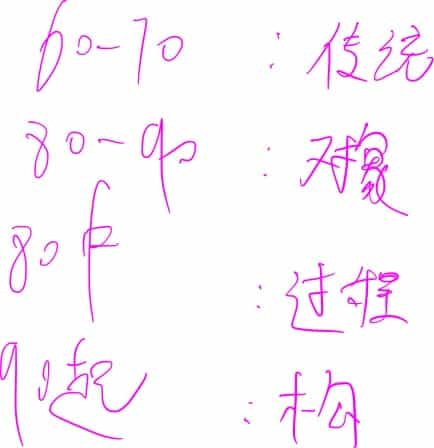 60-70 : 传统
80-90 : 对象
80中 : 过程
90起 : 松